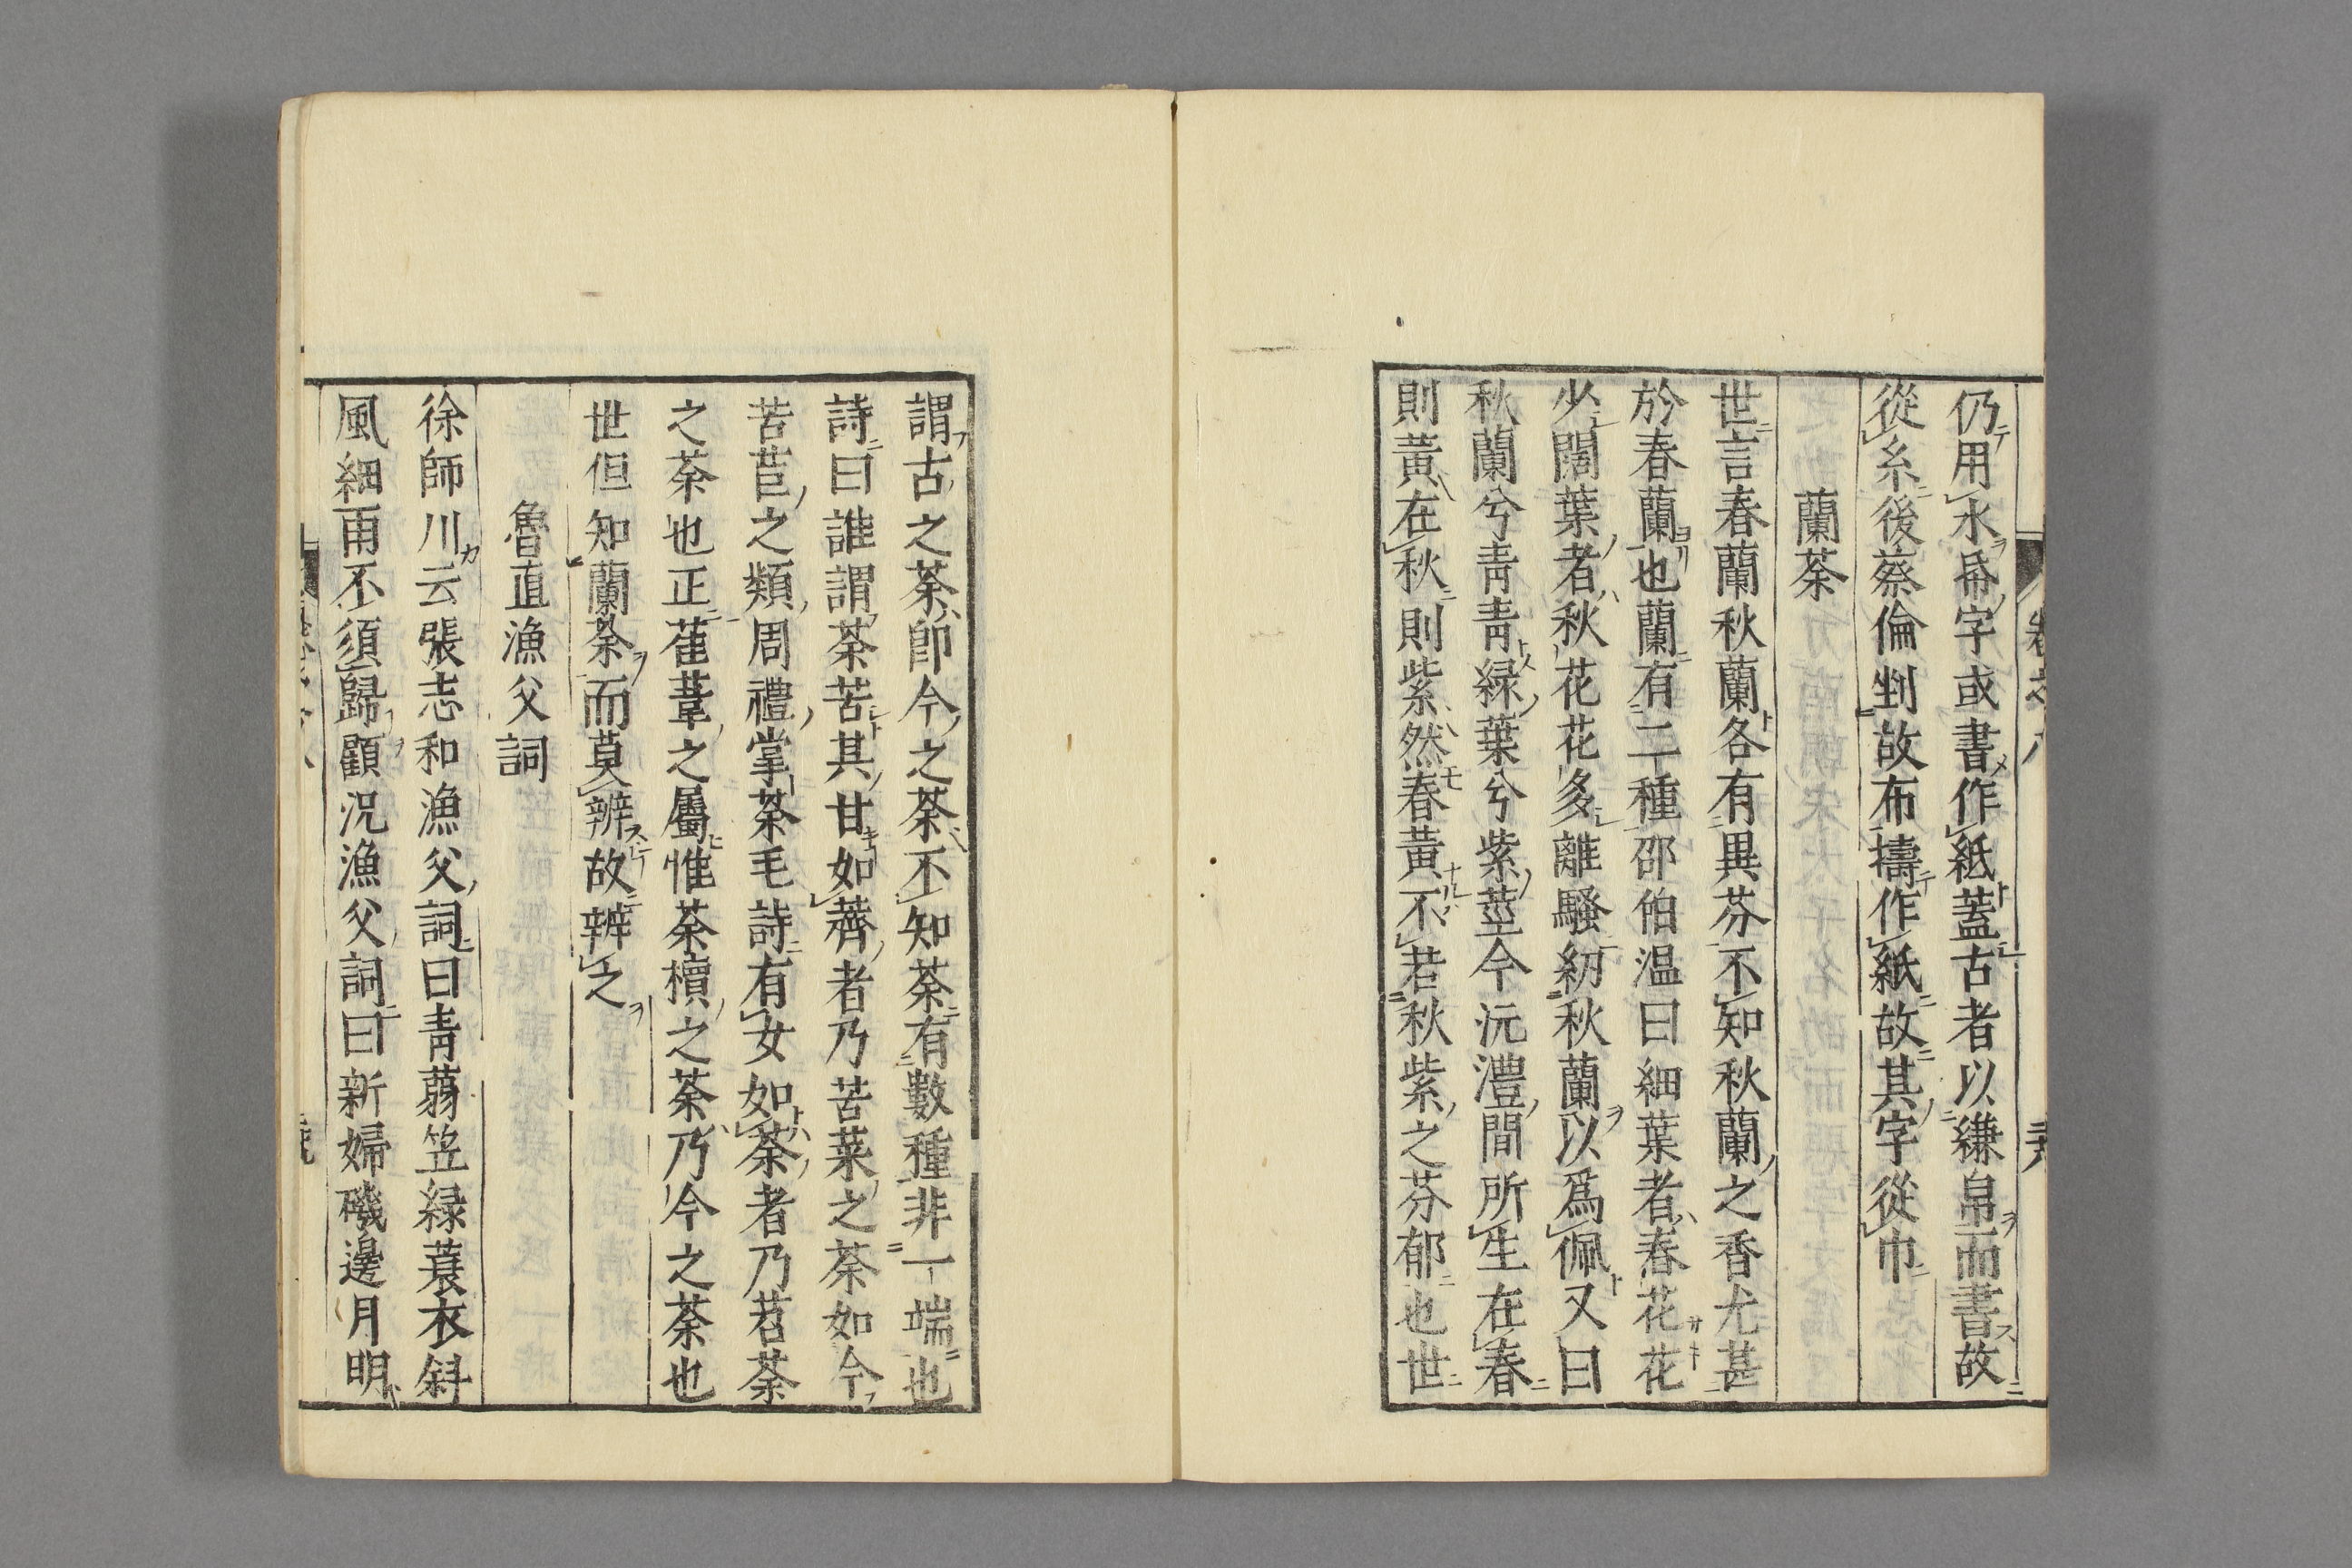 仍用氺帋字或書作紙蓋古者以縑帛而書故
從糸後蔡倫剉故布擣作紙故其字從巾
蘭荼
世言春蘭秋蘭各有異芬不知秋蘭之香尤甚
於春蘭也蘭有二種邵伯温曰細葉者春花花
少闊葉者秋花花多離騷紉秋蘭以爲佩又曰
秋蘭兮靑靑緑葉兮紫莖今沅澧間所生在春
則黃在秋則紫然春黃不若秋紫之芬郁也世
謂古之荼卽今之荼不知荼有數種非一端也
詩曰誰謂荼苦其甘如薺者乃苦菜之荼如今
苦苣之類周禮掌荼毛詩有女如荼者乃苕荼
之荼也正萑葦之屬惟荼檟之荼乃今之荼也
世但知蘭荼而莫辨故辨之
魯直漁父詞
徐師川云張志和漁父詞曰靑蒻笠緑蓑衣斜
風細雨不須歸顧況漁父詞曰新婦磯邊月明